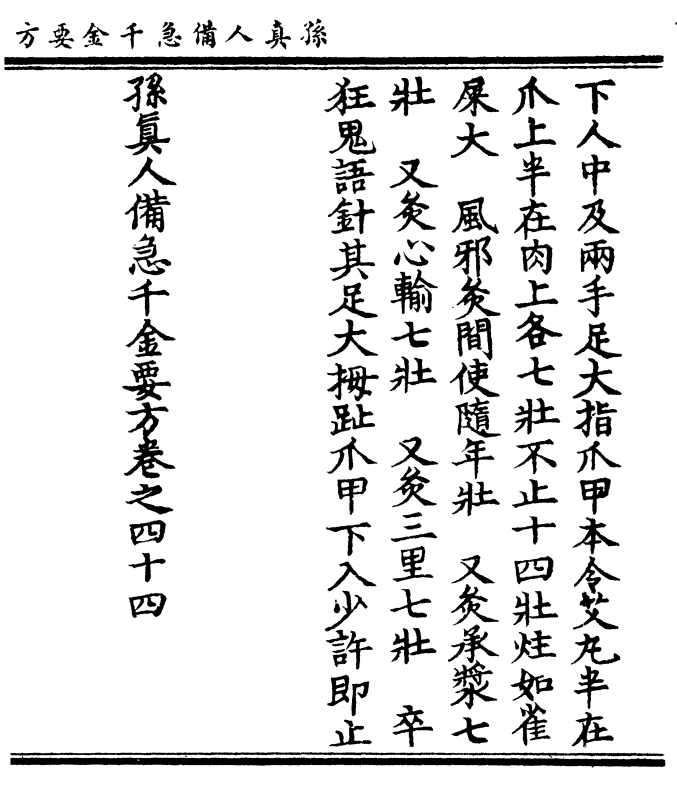 孫真人備急千金要方
下人中及兩手足大指爪甲本令艾丸半在
爪上半在肉上各七壯不止十四壯炷如雀
屎大　風邪灸間使隨年壯　又灸承漿七
壯　又灸心輸七壯　又灸三里七壯　卒
狂鬼語針其足大拇趾爪甲下入少許即止
孫眞人備急千金要方卷之四十四